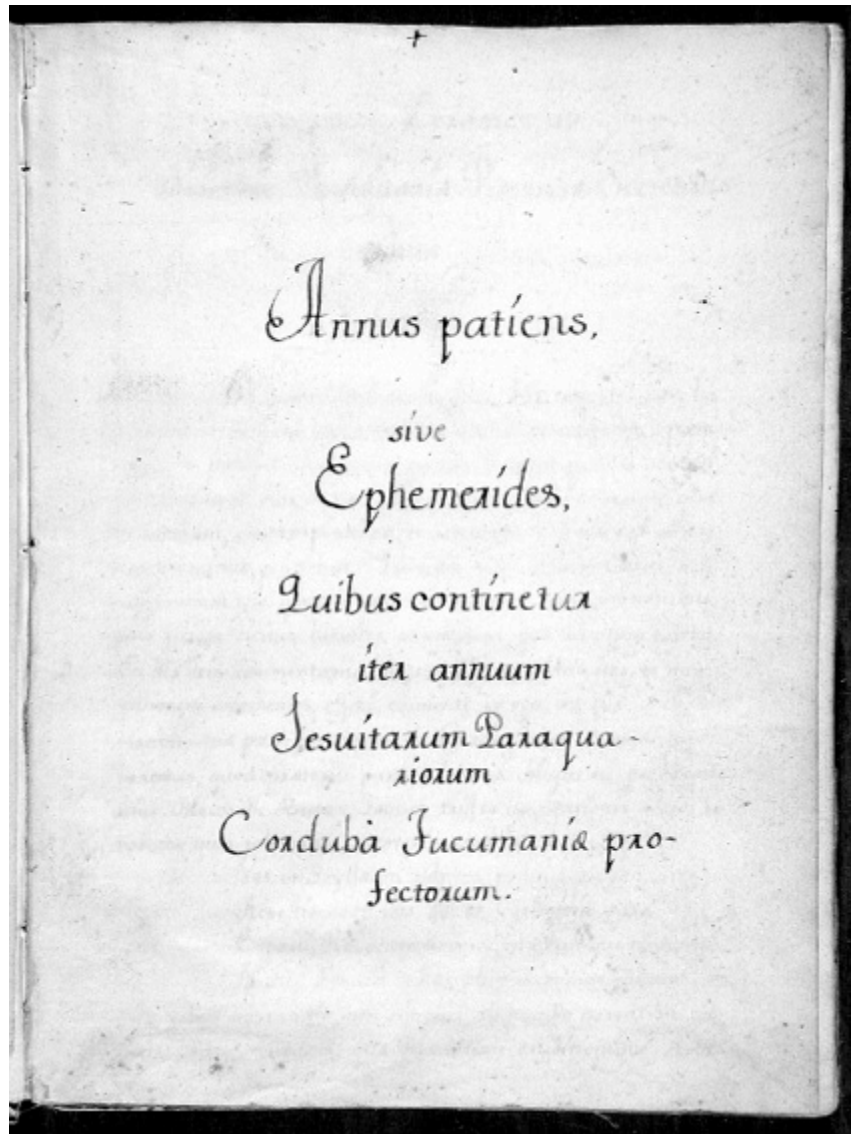 Annus patiens,
sive
Ephemerides,
Quibus continetur
iter annuum
Jesuitarum Paraqua-
riorum
Corduba Tucumaniæ pro-
fectorum.